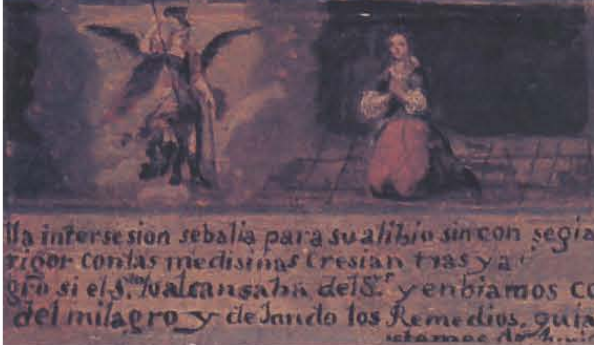 lla intersesion sebalia para su alibio sin con segia
rigor con las medisinas Cresian tras ya
gro si el S.to lo alcansaba del S.r y enbiamos co
del milagro y dejando los Remedios, quia